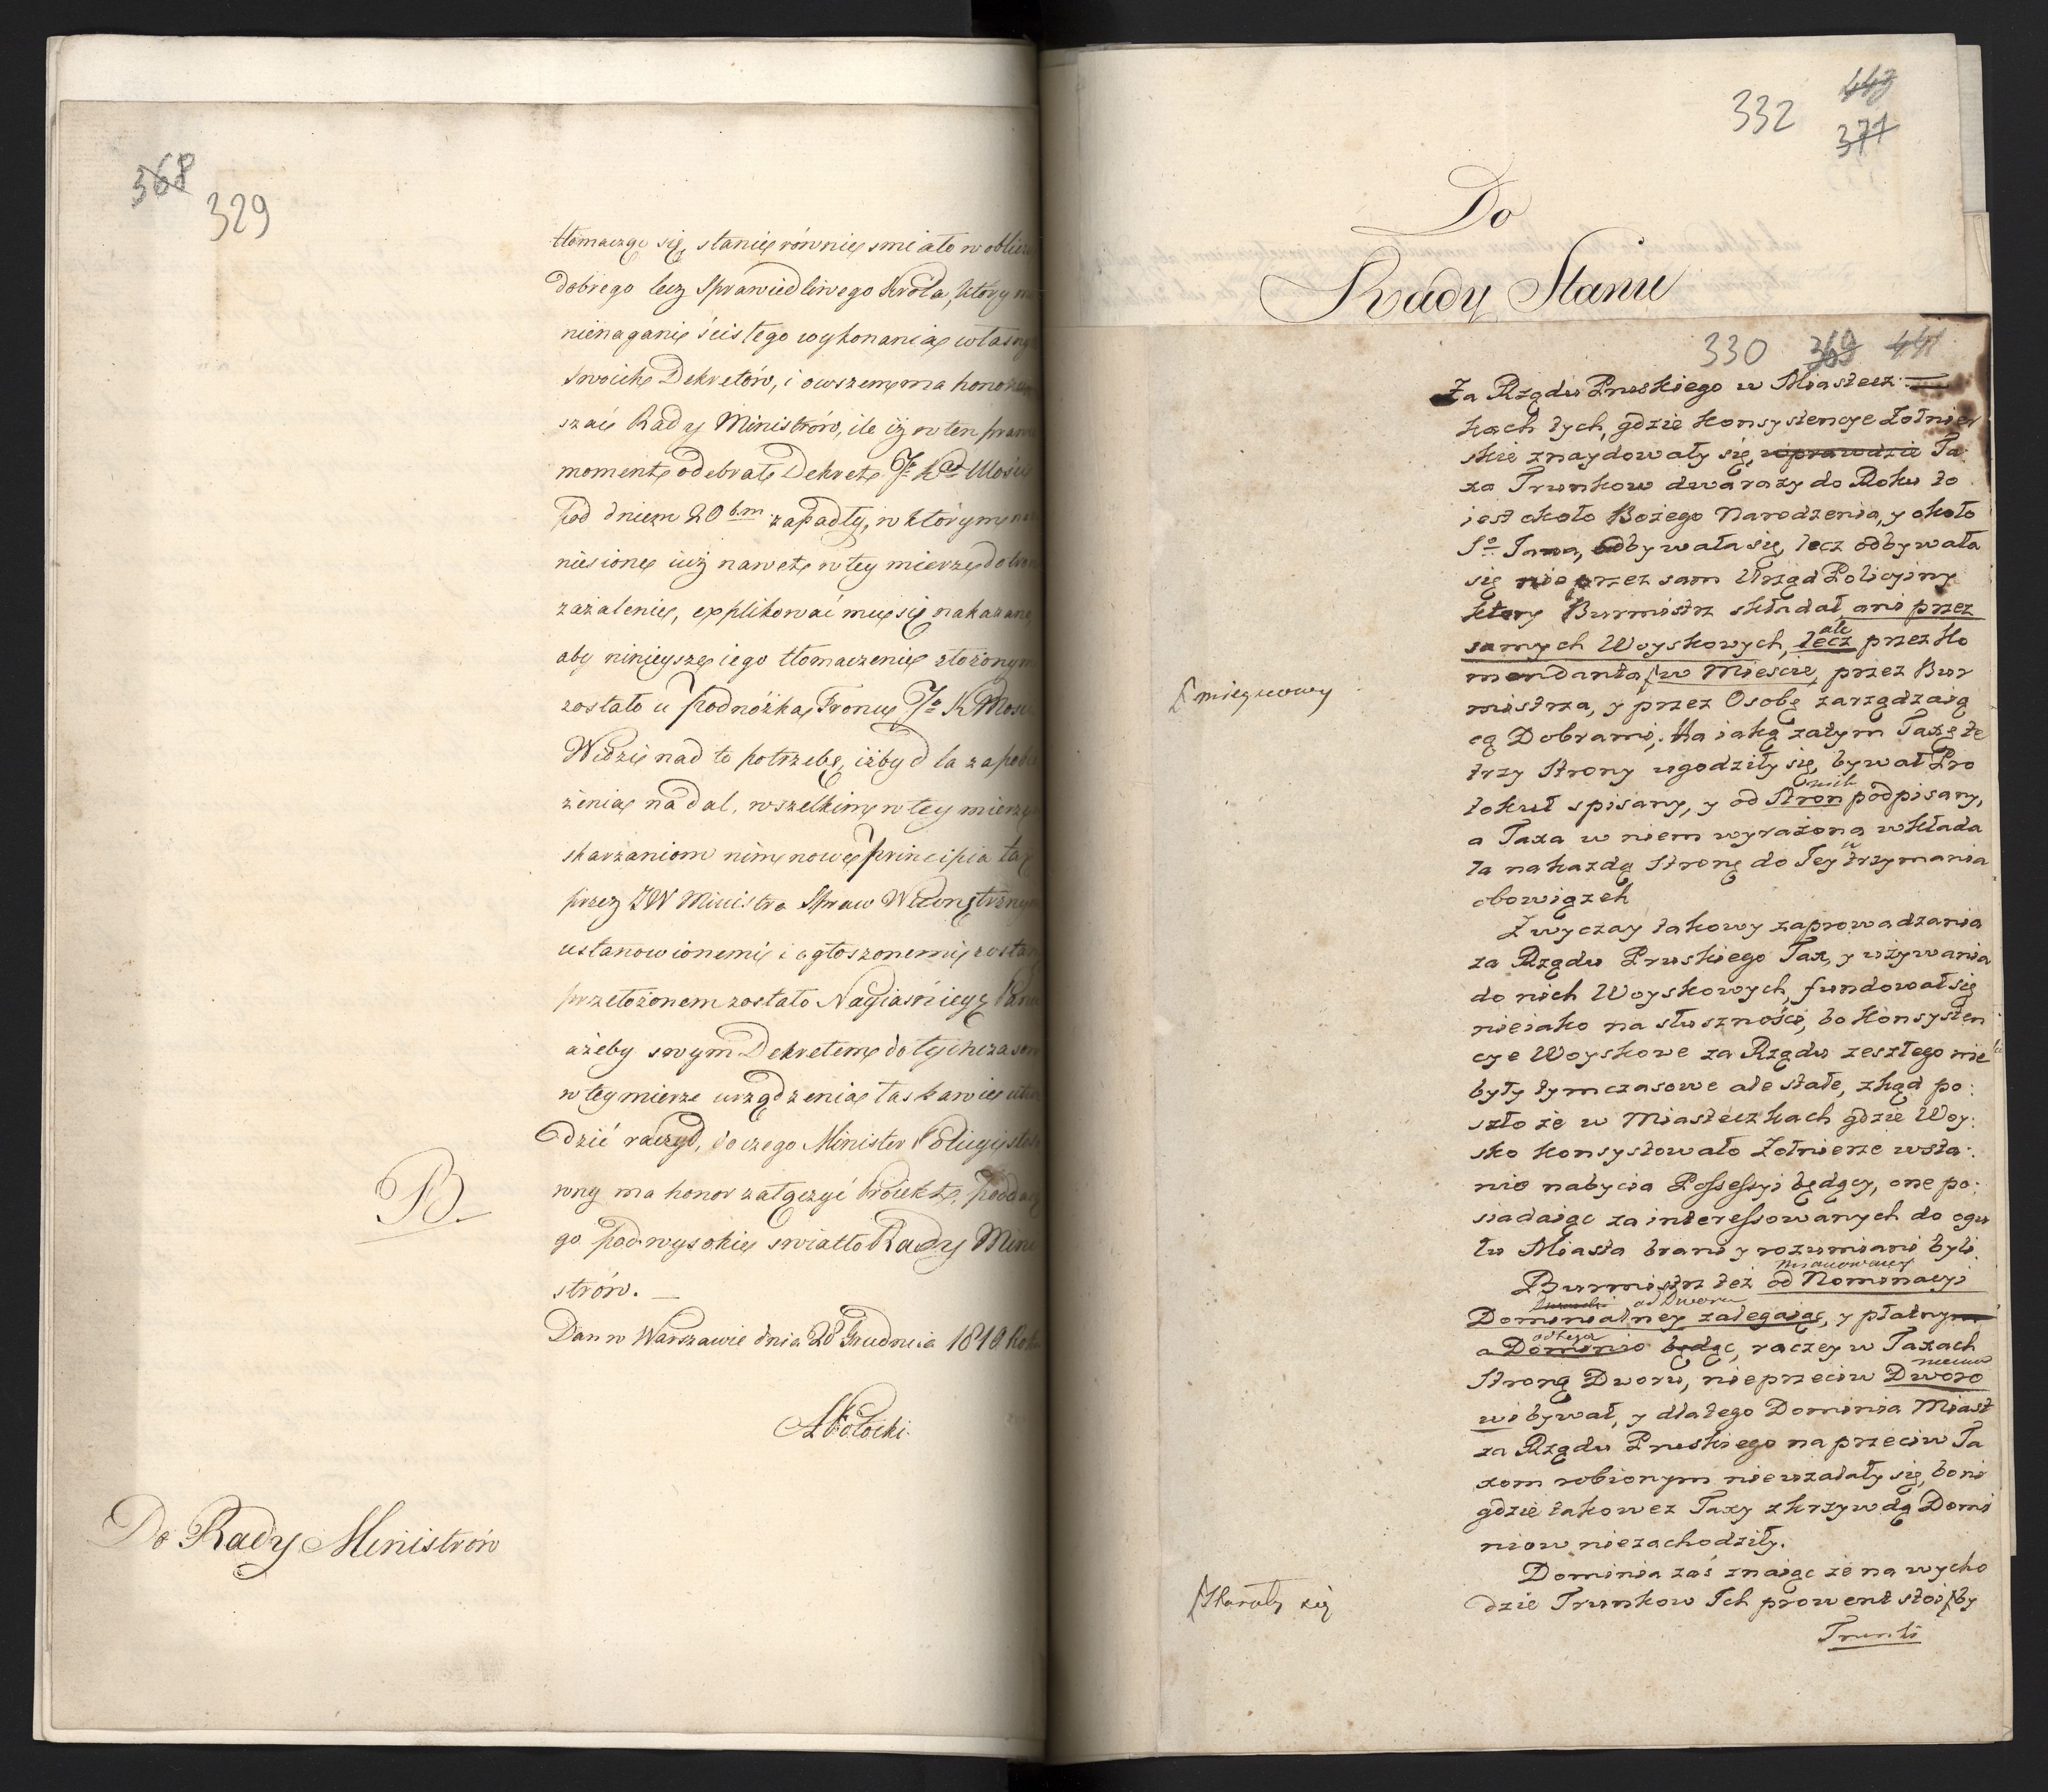 368
329
tłomacząc się, stanie równie smiało w oblicz
dobrego lecz Sprawiedliwego Króla, który
nienagani ścisłego wykonania własny
swoich Dekretów, i owszem ma honor
szać Rady Ministrów, ile iż w ten
moment odebrał Dekret Jº Kᵈ Mości
pod dniem 20 b.m. zapadły, w którym
niesione iuż nawet w tey mierze do
zażalenie, explikować mu się nakazane,
aby ninieysze iego tłomaczenie złożonym
zostało u podnóżka Tronu Jº K Mos
Widzi nad to potrzebę, iżby dla zapobie
żenia nadal, wszelkim w tey mierze
skarżaniom nim nowe principia tax
przez JW Ministra Spraw Wewnętrzny
ustanowionemi i ogłoszonemi zostan
przełożonem zostało Nayiaśnieyę Panu
ażeby swym Dekretem dotychczasow
w tey mierze urządzenia łaskawie
dzić raczył, do czego Minister Policyi
wny ma honor załączyć Proiekt, poddaią
go pod wysokie swiatło Rady Mini
strów. —
Dan w Warszawie dnia 28 Grudnia 1810 Roku
APotocki
B.
Do Rady Ministrów
332
443
371
Do
Rady Stanu
330 369 441
Za Rządu Pruskiego w Miastecz:
kach tych, gdzie Konsystencye Żołnier
skie znaydowały się, wprawdzie Ta:
xa Trunkow dwa razy do Roku to
iest około Bożego Narodzenia, y około
Sº Jana, odbywała się, lecz odbywała
się nie przez sam Urząd Policyiny
ktory Burmistrz składał, ani przez
samych Woyskowych, lecz przez Ko
ale
mendanta ſ w Mieście, przez Bur
ſ mieyscowy
mistrza, y przez Osobę zarządzaią
cą Dobrami; Na iaką zatym Taxę te
trzy Strony ugodziły się, bywał Pro
tokuł spisany, y od Stron podpisany,
nich
a Taxa w niem wyrażona wkłada
ła na każdą Stronę do Jey utrzymania
obowiązek
Zwyczay takowy zaprowadzania
za Rządu Pruskiego Tax, y używania
do nich Woyskowych, fundował się
nieiako na słuszności, bo Konsysten
cye Woyskowe za Rządu zeszłego nie
były tymczasowe ale stałe, zkąd po:
szło że w Miasteczkach gdzie Woy:
sko konsystowało Żołnierze w sta:
nie nabycia Possessyi będący, one po:
siadaiąc za interessowanych do ogu
łu Miasta brani y rozumiani byli.
mianowany
Burmistrz też od Nominacyi
od Dworu
Dominialney zalegaiąc, y płatnym
od tego
a Dominio będąc, raczey w Taxach
Stroną Dworu, nieprzeciw Dworo
niemu
wi bywał, y dlatego Dominia Miast
za Rządu Pruskiego naprzeciw Ta
xom robionym nieużalały się, bo ni
gdzie takowez Taxy z krzywdą Domi
niow niezachodziły.
Dominia zaś znaiąc że na wycho
dzie Trunkow Ich prowent stoi ſ by
ſ Starały się
Trunki